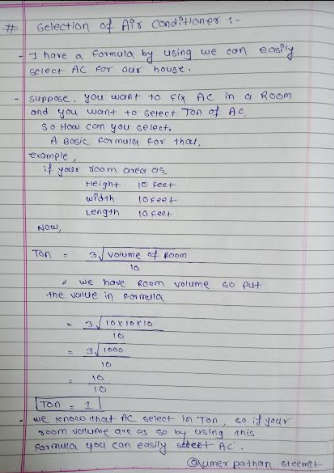 # Selection of Air Conditioner :-
- I have a formula by using we can easily
select AC for our house.
- Suppose, you want to fix AC in a Room
and you want to select Ton of AC,
So How can you select.
A Basic formula for that,
example,
if your room area as
Height 10 feet
width 10 feet
Length 10 feet
Now,
Ton = 3√volume of room
10
we have room volume so put
the value in formula
= 3√10x10x10
10
= 3√1000
10
= 10
10
Ton = 1
- we know that AC select in Ton, so if your
room volume are as so by using this
formula you can easily select AC.
@umer pathan steemit